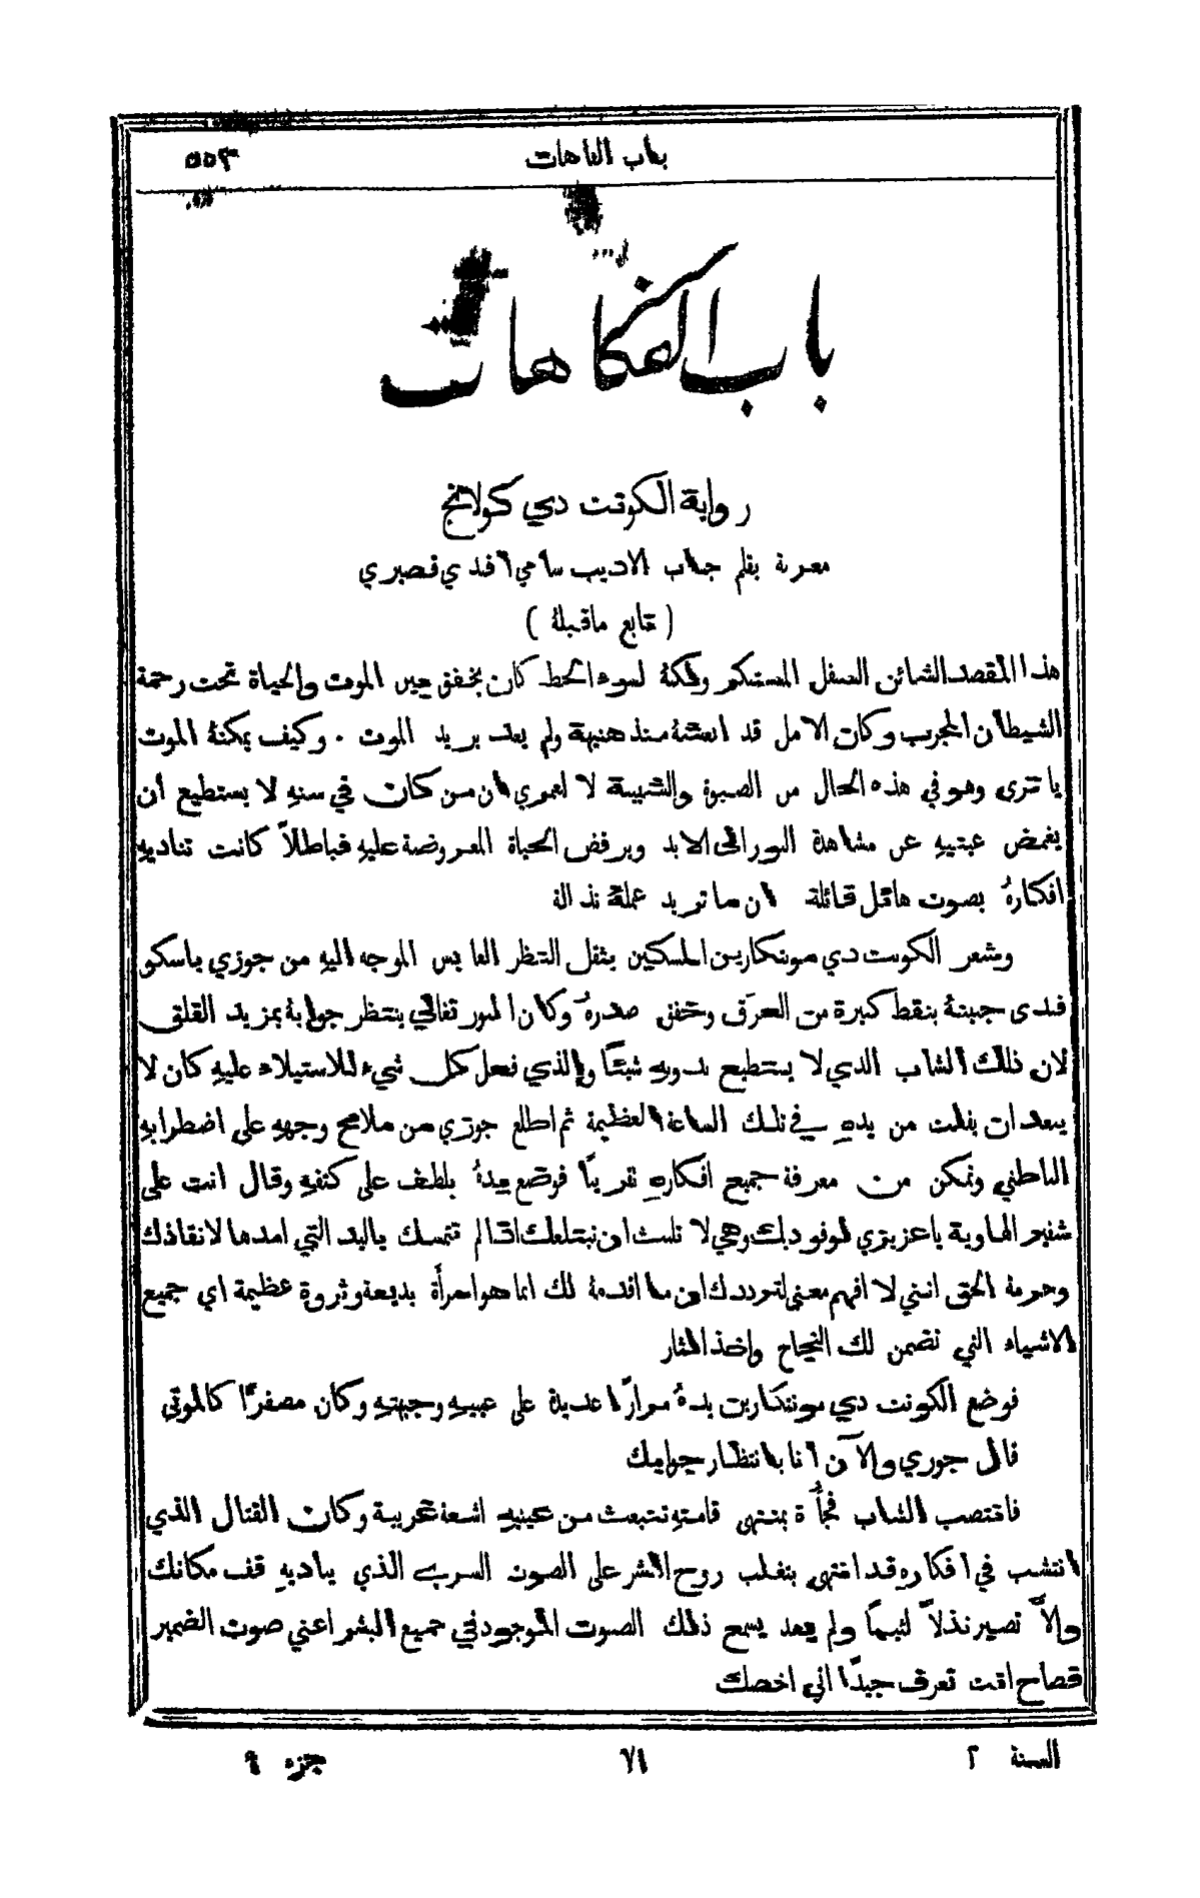 باب الفاهات ٥٥٣
باب الفكاهات
رواية الكونت دي كولانج
معربة بقلم جناب الاديب سامي افندي قصيري
( تابع ماقبلهُ )
هذا المقصد الشائن السفل المستكره ولكنهُ لسوء الحظ كان يخفق بين الموت والحياة تحت رحمة
الشيطان المجرب وكان الامل قد انعشهُ منذ هنيهة ولم يعد يريد الموت . وكيف يمكنهُ الموت
يا ترى وهو في هذه الحال من الصبوة والشبيبة لا لعمري ان من كان في سنهِ لا يستطيع أن
يغمض عينيهِ عن مشاهدة النور الى الابد ويرفض الحياة المعروضة عليهِ فباطلاً كانت تناديهِ
افكارهُ بصوت هائل قائلة ان ما تريد عملهُ نذالة
وشعر الكونت دي مونتكارين المسكين بثقل النظر العابس الموجه اليهِ من جوزي باسكو
فندى جبينهُ بنقط كبيرة من العرَق وخفق صدرهُ وكان البورتغالي ينتظر جوابهُ بمزيد القلق
لان ذلك الشاب الذي لا يستطيع بدونهِ شيئًا والذي فعل كل شيء للاستيلاء عليهِ كان لا
يبعد ان يفلت من يدهِ في تلك الساعة العظيمة ثم اطلع جوزي من ملامح وجههِ على اضطرابهِ
الباطني وتمكن من معرفة جميع افكارهِ تقريبًا فوضع يدهُ بلطف على كتفهِ وقال انت على
شفير الهاوية يا عزيزي لوفوديك وهي لا تلبث ان تبتلعك اذا لم تتمسك باليد التي امدها لانقاذك
وحرمة الحق انني لا افهم معنى لترددك ان ما اقدمهُ لك انما هو امرأة بديعة وثروة عظيمة اي جميع
الاشياء التي تضمن لك النجاح واخذ الثار
فوضع الكونت دي مونتكارين يدهُ مرارًا عديدة على عينيهِ وجبهتهِ وكان مصفرًّا كالموتى
قال جوزي والآن انا بانتظار جوابك
فانتصب الشاب فجأَةً بمنتهى قامتهِ تنبعث من عينيهِ اشعة غريبة وكان القتال الذي
انتشب في افكارهِ قد انتهى بتغلب روح الشر على الصوت السري الذي يناديهِ قف مكانك
والاَّ تصير نذلاً لئيمًا ولم يعد يسمع ذلك الصوت الموجود في جميع البشر اعني صوت الضمير
فصاح انت تعرف جيدًا اني اخصك
السنة ٢ ٧١ جزء ٩